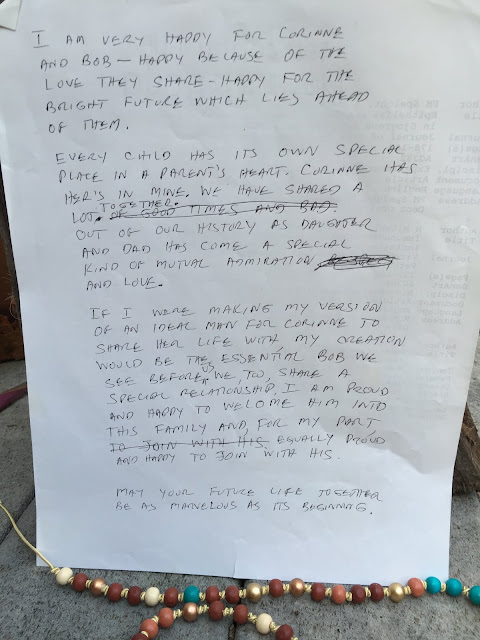 I AM VERY HAPPY FOR CORINNE
AND BOB — HAPPY BECAUSE OF THE
LOVE THEY SHARE - HAPPY FOR THE
BRIGHT FUTURE WHICH LIES AHEAD
OF THEM.
EVERY CHILD HAS ITS OWN SPECIAL
PLACE IN A PARENT'S HEART. CORINNE HAS
HER'S IN MINE. WE HAVE SHARED A
TOGETHER.
LOT OF GOOD TIMES AND BAD.
OUT OF OUR HISTORY AS DAUGHTER
AND DAD HAS COME A SPECIAL
KIND OF MUTUAL ADMIRATION
AND LOVE.
IF I WERE MAKING MY VERSION
OF AN IDEAL MAN FOR CORINNE TO
SHARE HER LIFE WITH, MY CREATION
WOULD BE THE ESSENTIAL BOB WE
SEE BEFORE US WE, TOO, SHARE A
SPECIAL RELATIONSHIP. I AM PROUD
AND HAPPY TO WELOME HIM INTO
THIS FAMILY AND, FOR MY PART
TO JOIN WITH HIS EQUALLY PROUD
AND HAPPY TO JOIN WITH HIS.
MAY YOUR FUTURE LIFE TOGETHER
BE AS MARVELOUS AS ITS BEGINNING.